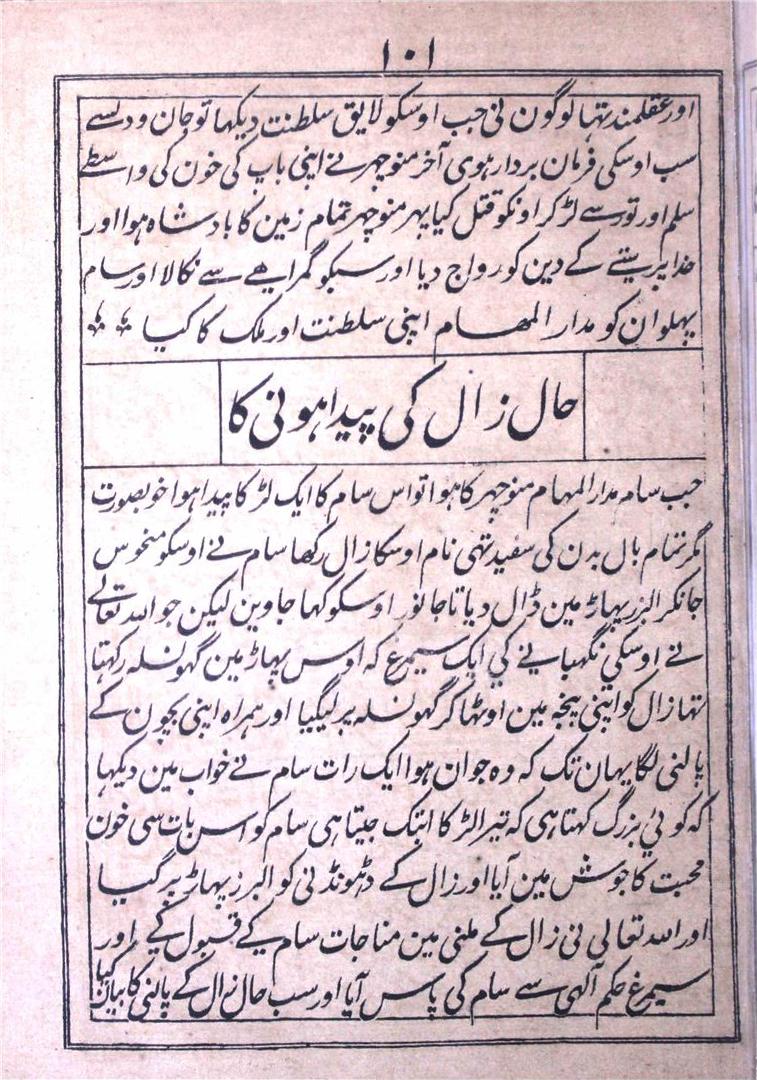 ۱۰۱
اور عقلمند تہا لوگون نی جب اوسکو لایق سلطنت دیکہا تو جان و دلسے
سب اوسکی فرمان بردار ہوی آخر منوچہر نے اپنی باپ کی خون کی واسطے
سلم اور تور سے لڑکر اونکو قتل کیا پہر منوچہر تمام زمین کا بادشاہ ہوا اور
خدا پرستے کے دین کو رواج دیا اور سبکو گمراہے سے نکالا اور سام
پہلوان کو مدار المہام اپنی سلطنت اور ملک کا کیا
حال زال کی پیدا ہونی کا
جب سام مدار المہام منوچہر کا ہوا تو اس سام کا ایک لڑکا پیدا ہوا خوبصورت
مگر تمام بال بدن کی سفید تہی نام اوسکا زال رکھا سام نے اوسکو منحوس
جانکر البرز پہاڑ مین ڈال دیا تا جانور اوسکو کہا جاوین لیکن جو اللہ تعالے
نے اوسکی نگہبانے کی ایک سیمرغ کہ اوس پہاڑ مین گھونسلہ رکہتا
تہا زال کو اپنی پنجہ مین اوٹہا کر گھونسلہ پر لیگیا اور ہمراہ اپنی بچون کے
پالنی لگا یہان تک کہ وہ جوان ہوا ایک رات سام نے خواب مین دیکہا
کہ کوئی بزرگ کہتا ہی کہ تیرا لڑکا ابتک جیتا ہی سام کو اس بات سی خون
محبت کا جوش مین آیا اور زال کے ڈھونڈنی کو البرز پہاڑ پر گیا
اور اللہ تعالی نی زال کے ملنی مین مناجات سام کے قبول کے اور
سیمرغ حکم آلہی سے سام کی پاس آیا اور سب حال زال کے پالنی کا بیان کیا